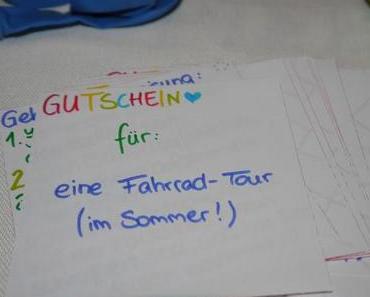 GUTSCHEIN
für:
eine Fahrrad-Tour
(im Sommer!)
1.
2